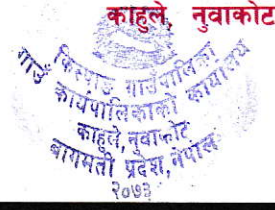 काहुले, नुवाकोट
किस्पाङ गाउँपालिका
गाउँ कार्यपालिकाको कार्यालय
काहुले, नुवाकोट
बागमती प्रदेश, नेपाल
२०७३